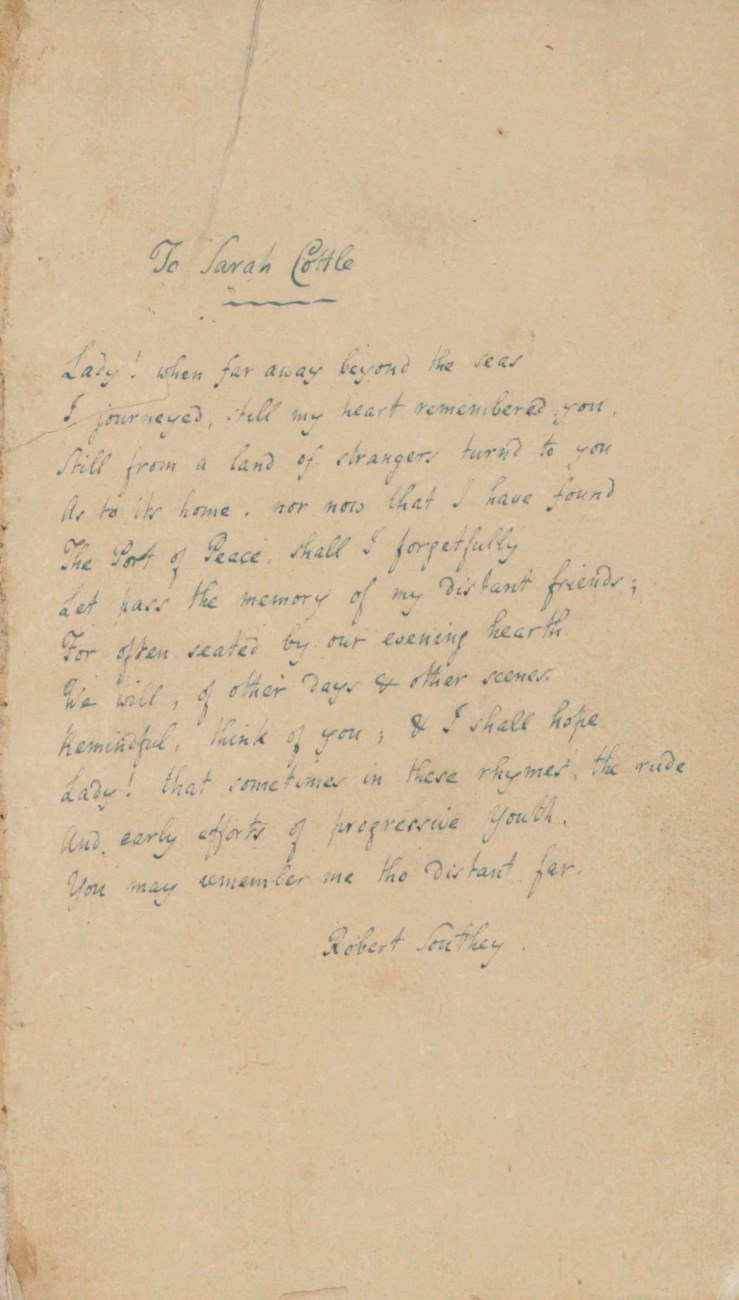 To Sarah Cottle
Lady! when far away beyond the seas
I journeyed, still my heart remembered you,
Still from a land of strangers turn'd to you
As to its home. nor now that I have found
The Port of Peace, shall I forgetfully
Let pass the memory of my distant friends;
For often seated by our evening hearth
We will, of other days & other scenes
Remindful, think of you; & I shall hope
Lady! that sometimes in these rhymes, the rude
And early efforts of progressive Youth,
You may remember me tho distant far.
Robert Southey.